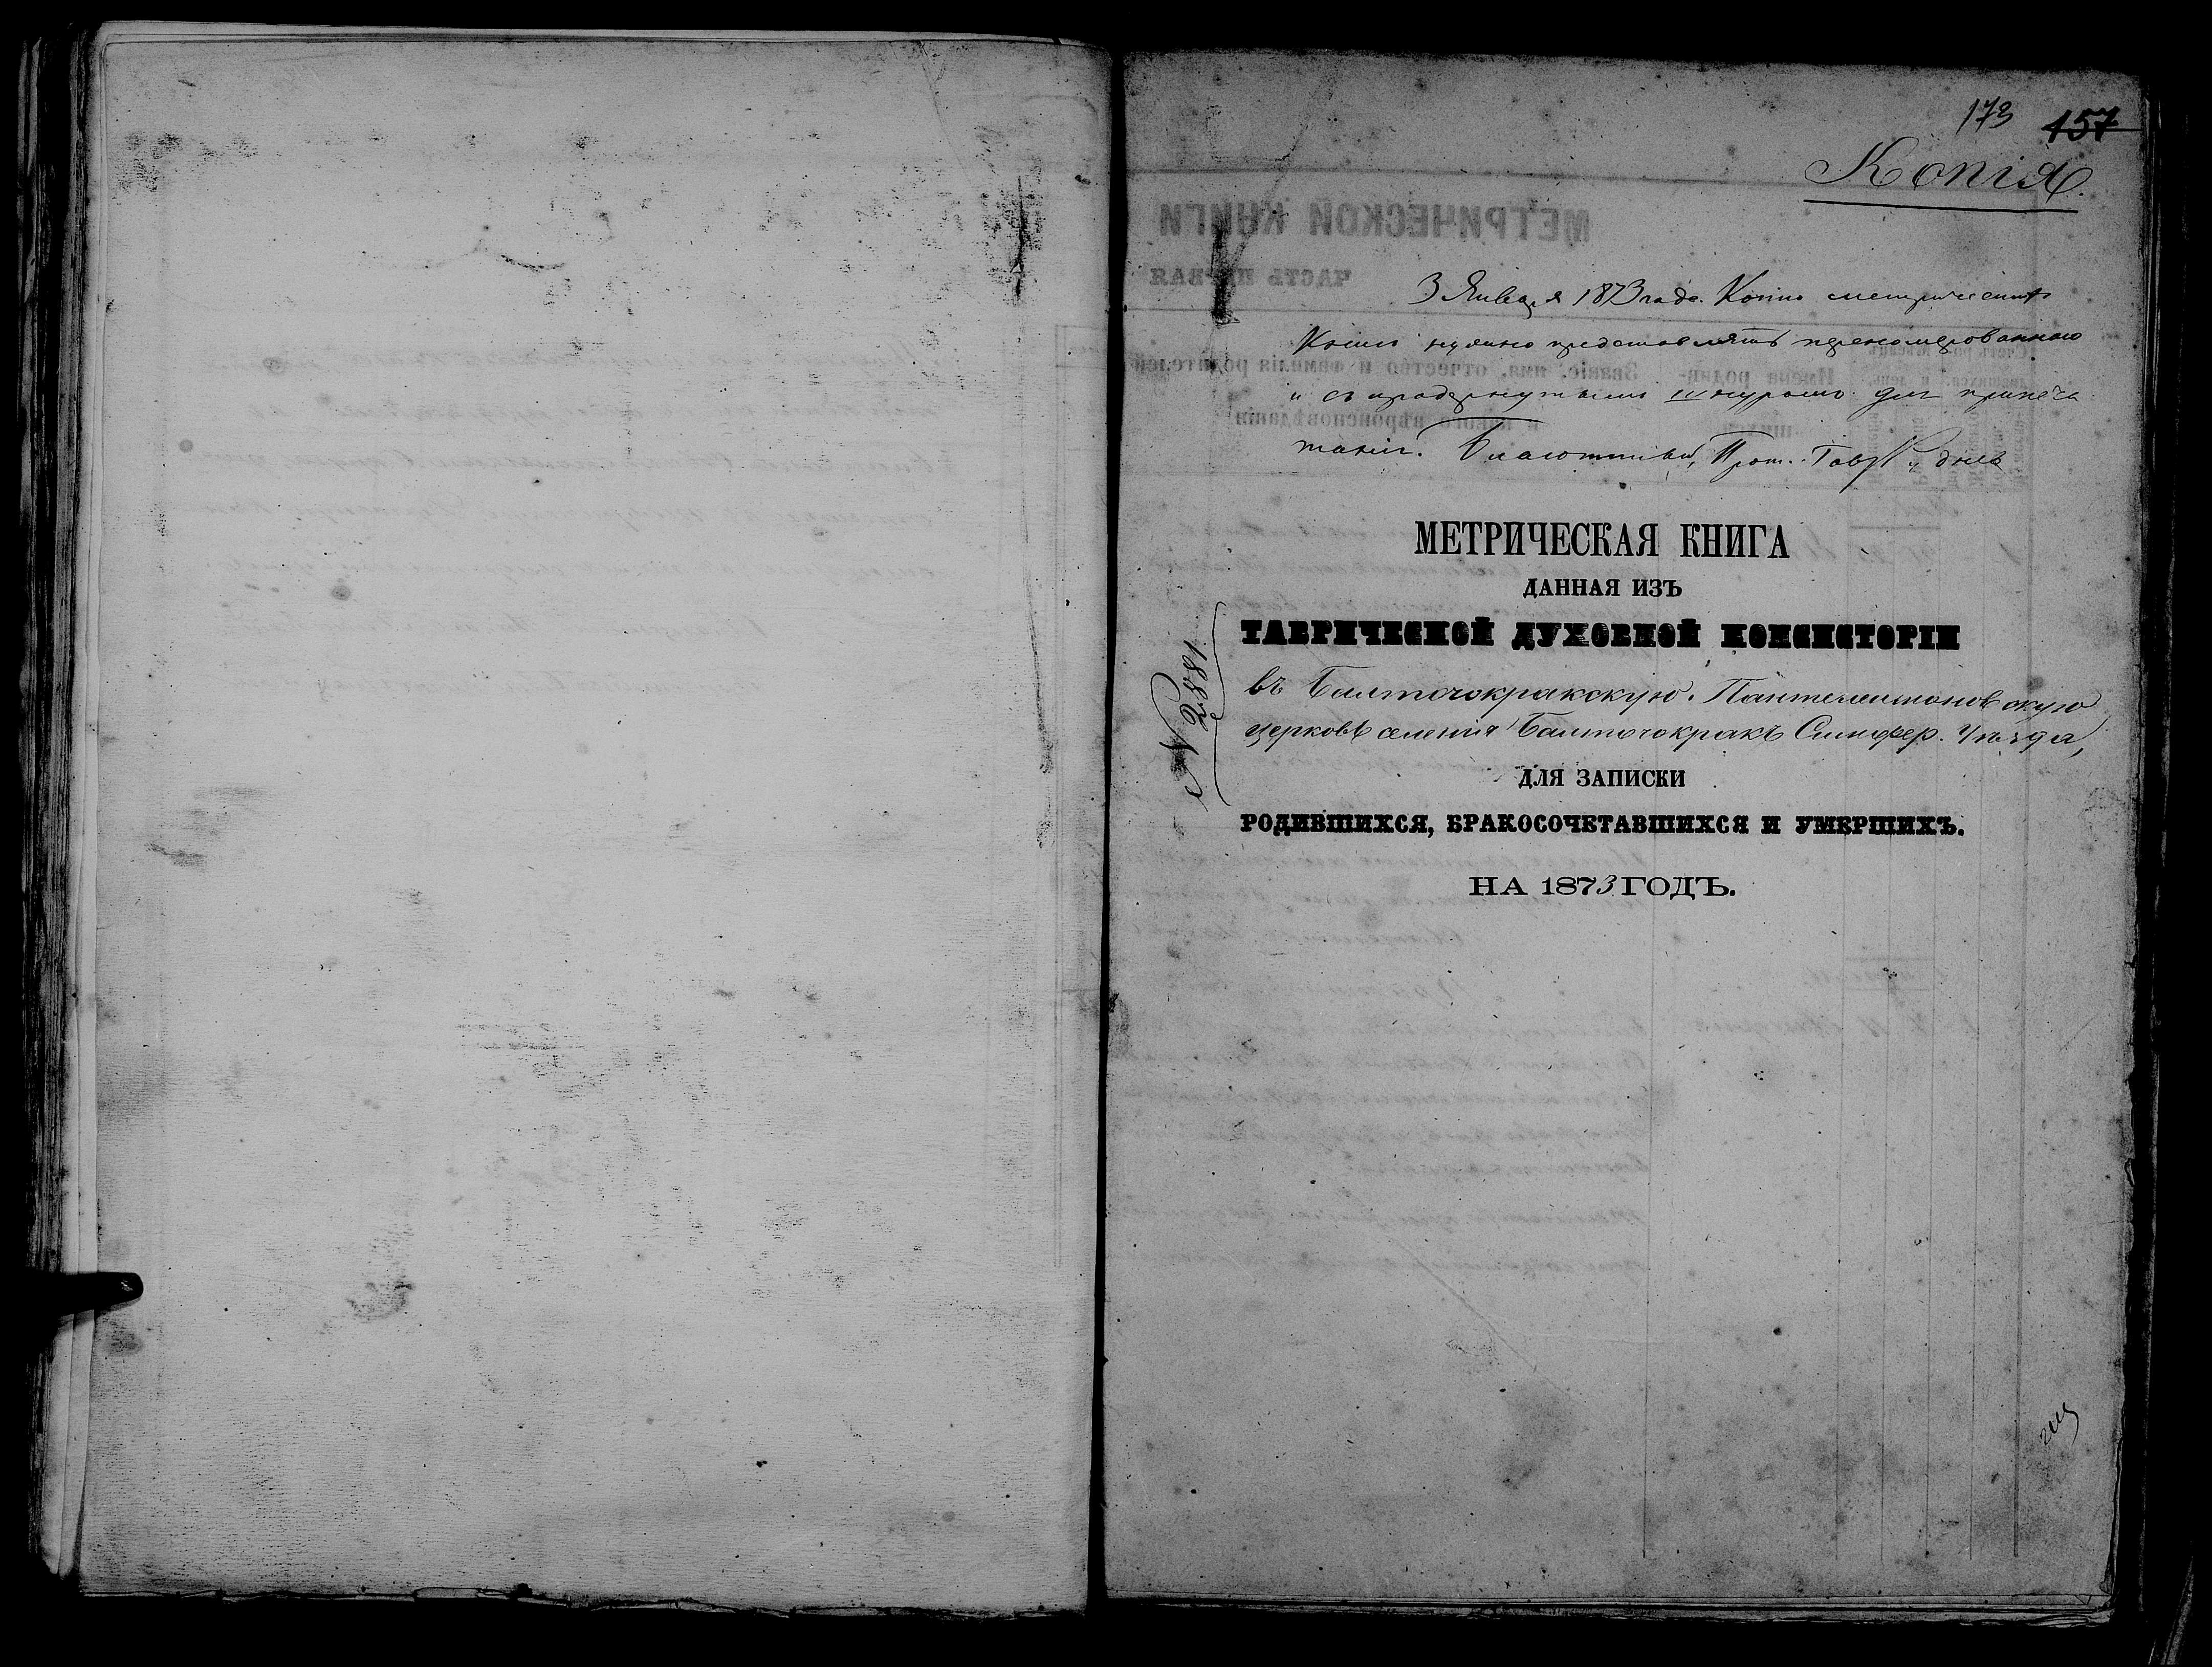 173 157
Копія.
3 Января 1873 года. Копію метрическихъ
Книгъ нужно представлять переномерованною
и съ продернутымъ шнуромъ для припеча
танія. Благочинный, Прот.
МЕТРИЧЕСКАЯ КНИГА
ДАННАЯ ИЗЪ
ТАВРИЧЕСКОЙ ДУХОВНОЙ КОНСИСТОРІИ
№ 2881.
въ Балточокракскую Пантелеимоновскую
церковь селенія Балточокракъ Симфер. Уѣзда,
ДЛЯ ЗАПИСКИ
РОДИВШИХСЯ, БРАКОСОЧЕТАВШИХСЯ И УМЕРШИХЪ.
НА 1873 ГОДЪ.